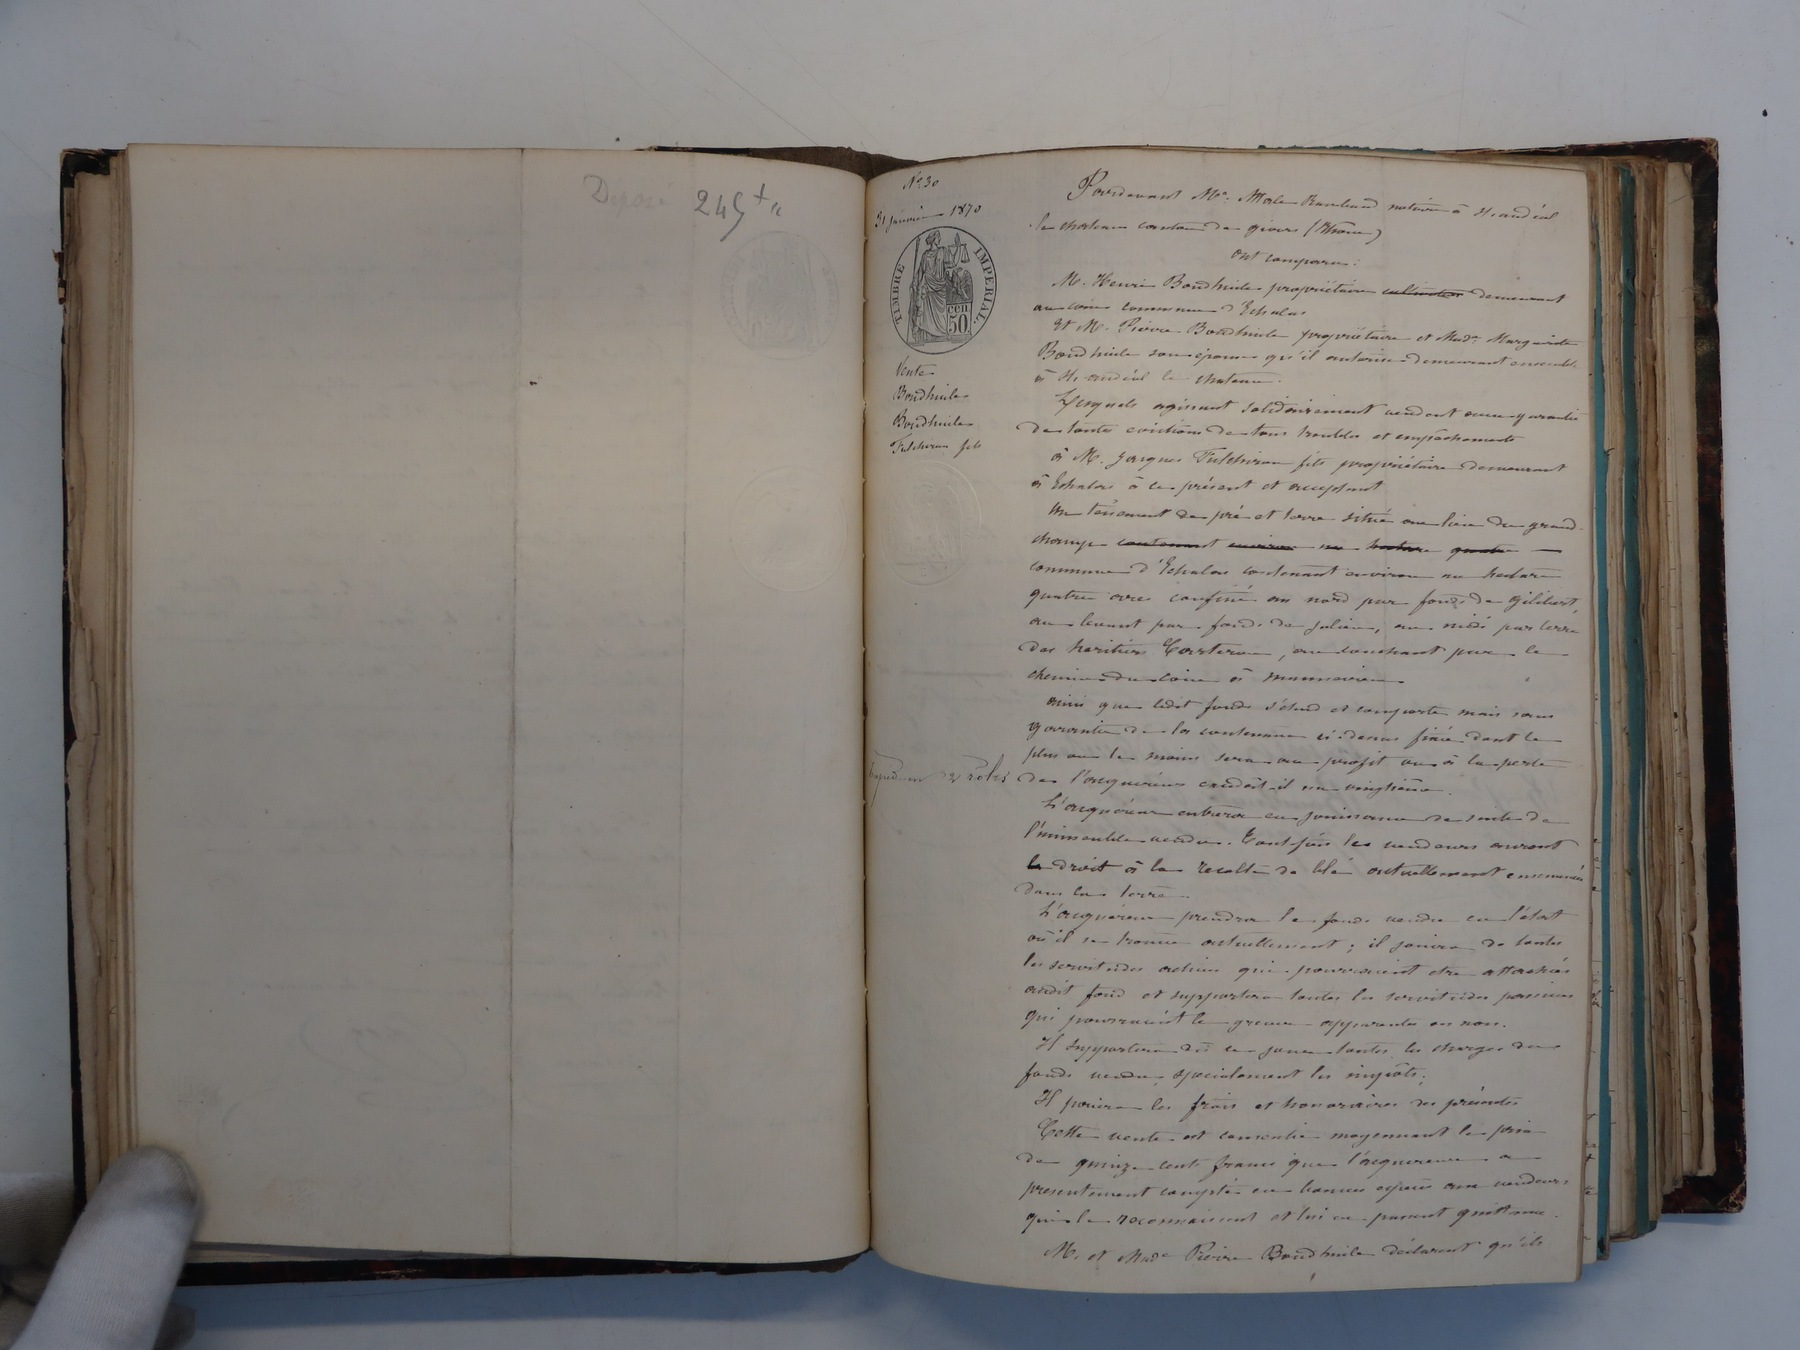 Déposé 245
N° 30
31 janvier 1870
TIMBRE IMPERIAL
50 cen
Vente
Boudhuile
Boudhuile
Fulchiron fils
2 roles
Pardevant Me notaire à St andéol
le chateau canton de givors (Rhône)
ont comparu :
M. Henri Boudhuile propriétaire cultivateur demeurant
au commune d'Echalas
Et M. Pierre Boudhuile propriétaire et Made Marguerite
Boudhuile son épouse qu'il autorise demeurant ensemble
à St andéol le chateau.
Lesquels agissant solidairement vendent avec garantie
de toutes evictions de tous troubles et empêchements
à M. Jacques Fulchiron fils propriétaire demeurant
à Echalas à ce présent et acceptant
Un tènement de pré et terre situé au lieu du grand
champ contenant environ un hectare quatre
commune d'Echalas contenant environ un hectare
quatre ares confiné au nord par fonds de Gilibert,
au levant par fonds de Julien, au midi par terre
des heritiers au couchant par le
chemin du à
ainsi que ledit fonds s'étend et comporte mais sans
garantie de la contenance ci-dessus fixée dont le
plus ou le moins sera au profit ou à la perte
de l'acquéreur excédat-il un vingtième.
L'acquéreur entrera en jouissance de suite de
l'immeuble vendu. Toutefois les vendeurs auront
le droit à la recolte de blé actuellement ensemencée
dans la terre.
L'acquéreur prendra le fonds vendu en l'état
où il se trouve actuellement ; il jouira de toutes
les servitudes actives qui pourraient etre attachées
audit fond et supportera toutes les servitudes passives
qui pourraient le grever apparentes ou non.
Il supportera dès ce jour toutes les charges du
fonds vendu, specialement les impôts ;
Il paiera les frais et honoraires des présentes
Cette vente est consentie moyennant le prix
de quinze cents francs que l'acquereur a
presentement compté en bonnes espèces aux vendeurs
qui le reconnaissent et lui en passent quittance.
M. et Made Pierre Boudhuile déclarent qu'ils